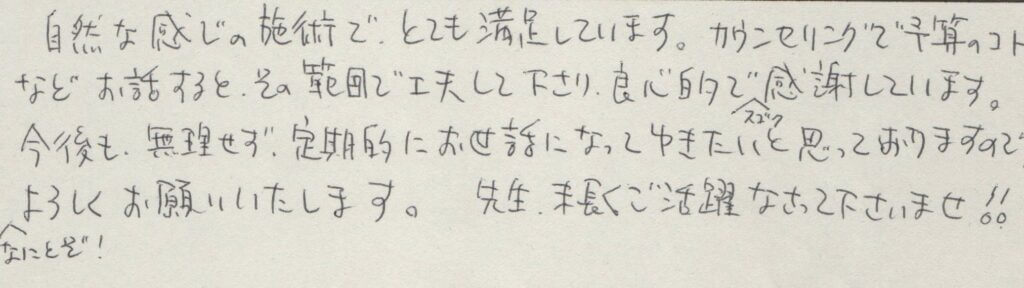 自然な感じの施術で、とても満足しています。カウンセリングで予算のコト
などお話すると、その範囲で工夫して下さり、良心的で感謝しています。
スゴク
今後も、無理せず、定期的にお世話になってゆきたいと思っておりますので
よろしくお願いいたします。 先生、末長くご活躍なさって下さいませ!!
なにとぞ!